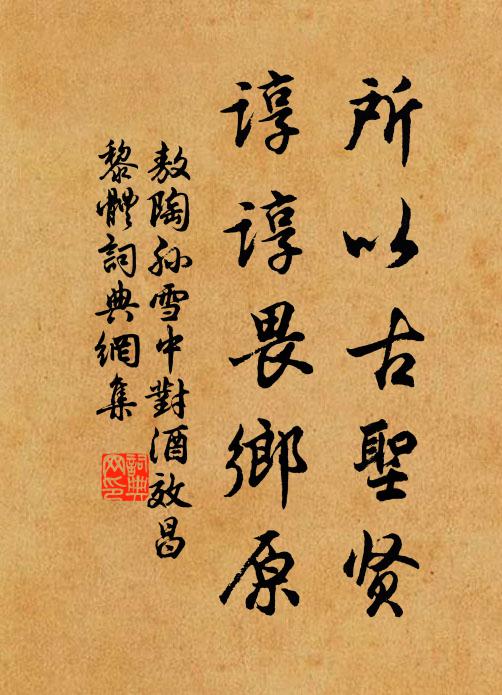 所以古聖贤
谆谆畏鄉原
敖陶孙雪中對酒效昌
黎體詞典網集
詞典网印